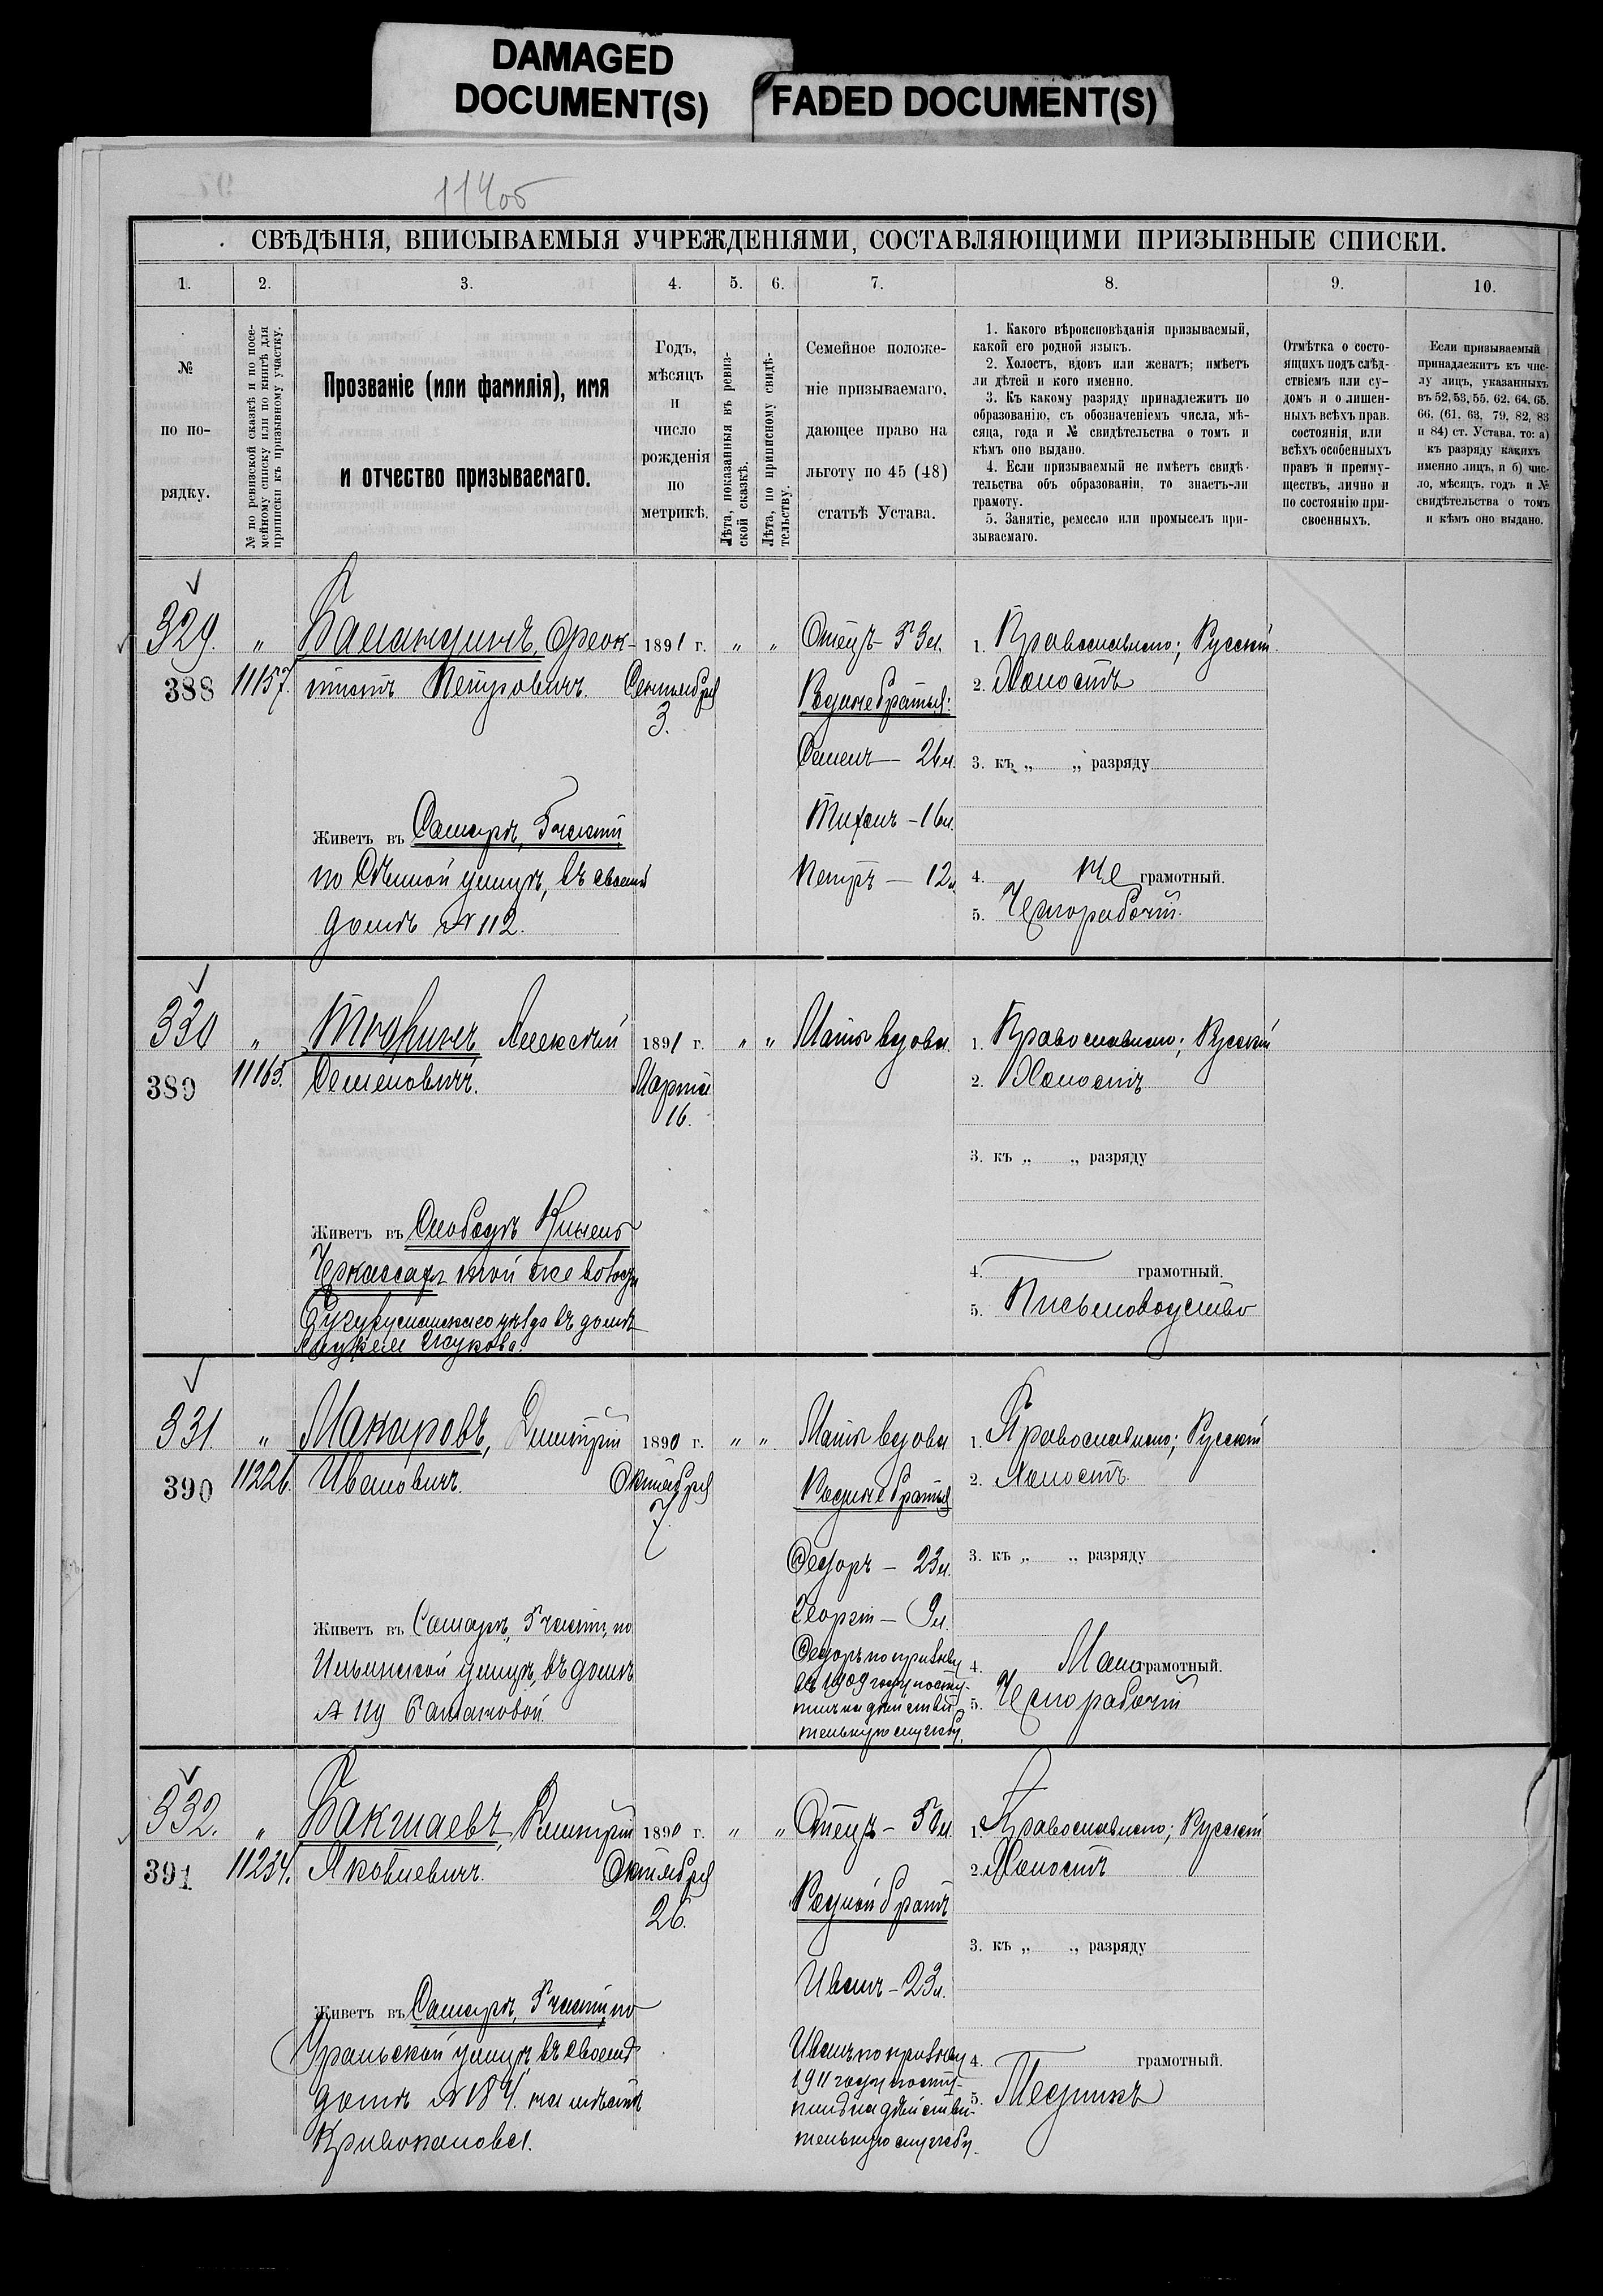 DAMAGED
DOCUMENT(S)
FADED DOCUMENT(S)
114об
СВѢДѢНІЯ, ВПИСЫВАЕМЫЯ УЧРЕЖДЕНІЯМИ, СОСТАВЛЯЮЩИМИ ПРИЗЫВНЫЕ СПИСКИ.
1. 2. 3. 4. 5. 6. 7. 8. 9. 10.
№
по по-
рядку.
№ по ревизской сказкѣ и по посе-
мейному списку или по книгѣ для
приписки къ призывному участку.
Прозваніе (или фамилія), имя
и отчество призываемаго.
Годъ,
мѣсяцъ
и
число
рожденія
по
метрикѣ.
Лѣта, показанныя въ ревиз-
ской сказкѣ.
Лѣта, по приписному свидѣ-
тельству.
Семейное положе-
ніе призываемаго,
дающее право на
льготу по 45 (48)
статьѣ Устава.
1. Какого вѣроисповѣданія призываемый,
какой его родной языкъ.
2. Холостъ, вдовъ или женатъ; имѣетъ
ли дѣтей и кого именно.
3. Къ какому разряду принадлежитъ по
образованію, съ обозначеніемъ числа, мѣ-
сяца, года и № свидѣтельства о томъ и
кѣмъ оно выдано.
4. Если призываемый не имѣетъ свидѣ-
тельства объ образованіи, то знаетъ-ли
грамоту.
5. Занятіе, ремесло или промыселъ при-
зываемаго.
Отмѣтка о состо-
ящихъ подъ слѣд-
ствіемъ или су-
домъ и о лишен-
ныхъ всѣхъ прав.
состоянія, или
всѣхъ особенныхъ
правъ и преиму-
ществъ, лично и
по состоянію при-
своенныхъ.
Если призываемый
принадлежитъ къ чис-
лу лицъ, указанныхъ
въ 52, 53, 55, 62, 64, 65,
66, (61, 63, 79, 82, 83
и 84) ст. Устава, то: а)
къ разряду какихъ
именно лицъ, и б) чис-
ло, мѣсяцъ, годъ и №
свидѣтельства о томъ
и кѣмъ оно выдано.
329. „ Баландинъ, Феок-
388 11157. тистъ Петровичъ.
1891 г. „ „
Сентября
3.
Отецъ - 53 л.
Родные братья:
Семенъ — 26 л.
Тихонъ - 16 л.
Петръ — 12 л.
1. Православнаго; Русскій
2. Холостъ
3. къ „ „ разряду
4. Не грамотный.
5. Чернорабочій.
Живетъ въ Самарѣ, 5 части,
по Сѣнной улицѣ, въ своемъ
домѣ № 112.
330 „ Алексѣй
389 11165. Семеновичъ.
1891 г. „ „
Марта
16.
Мать вдова.
1. Православнаго; Русскій
2. Холостъ
3. къ „ „ разряду
4. грамотный.
5. Письмоводство
Живетъ въ Слободѣ Кинель
Черкассахъ той же волости
Бугурусланскаго уѣзда въ домѣ
Жукова.
331. „ Макаровъ, Дмитрій
390 11226. Ивановичъ.
1890 г. „ „
Октября
7.
Мать вдова
Родные братья
Федоръ — 23 л.
Георгій — 9 л.
Федоръ по призыву
въ 1909 году посту-
пилъ на дѣйстви-
тельную службу.
1. Православнаго; Русскій
2. Холостъ.
3. къ „ „ разряду
4. Мало грамотный.
5. Чернорабочій
Живетъ въ Самарѣ, 5 части, по
Ильинской улицѣ, въ домѣ
№ 119
332. „ Бакшаевъ, Дмитрій
391 11234. Яковлевичъ.
1890 г. „ „
Октября
26.
Отецъ - 50 л.
Родной братъ
Иванъ - 23 л.
Иванъ по призыву
1911 году посту-
пилъ на дѣйстви-
тельную службу.
1. Православнаго; Русскій
2. Холостъ
3. къ „ „ разряду
4. грамотный.
5. Мѣдникъ
Живетъ въ Самарѣ, 5 части, по
Уральской улицѣ, въ своемъ
домѣ № 184. на мѣстѣ